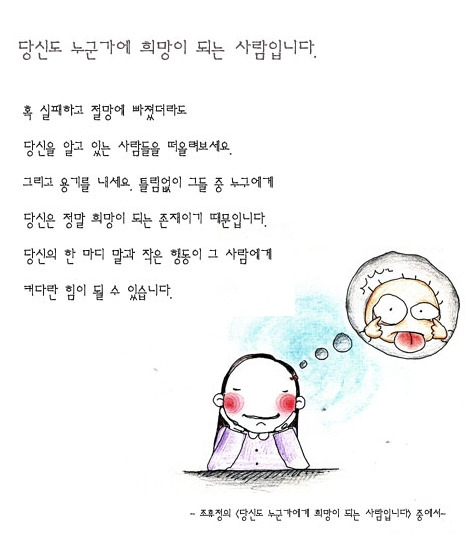 당신도 누군가에 희망이 되는 사람입니다.
혹 실패하고 절망에 빠졌더라도
당신을 알고 있는 사람들을 떠올려보세요.
그리고 용기를 내세요. 틀림없이 그들 중 누구에게
당신은 정말 희망이 되는 존재이기 때문입니다.
당신의 한 마디 말과 작은 행동이 그 사람에게
커다란 힘이 될 수 있습니다.
~ 조호정의 <당신도 누군가에게 희망이 되는 사람입니다> 중에서~